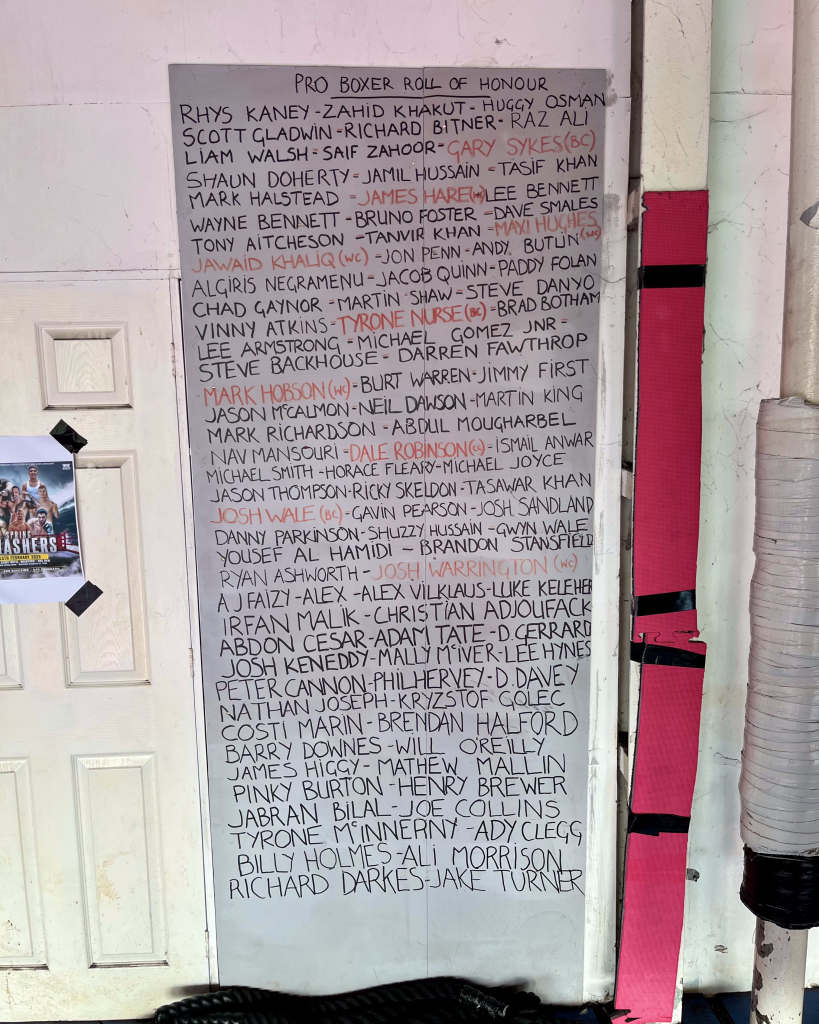 PRO BOXER ROLL OF HONOUR
RHYS KANEY-ZAHID KHAKUT-HUGGY OSMAN
SCOTT GLADWIN-RICHARD BITNER-RAZ ALI
LIAM WALSH-SAIF ZAHOOR-GARY SYKES(BC)
SHAUN DOHERTY-JAMIL HUSSAIN-TASIF KHAN
MARK HALSTEAD-JAMES HARE LEE BENNETT
WAYNE BENNETT-BRUNO FOSTER-DAVE SMALES
TONY AITCHESON-TANVIR KHAN-MAXI HUGHES (WC)
JAWAID KHALIQ(WC)-JON PENN-ANDY BUTLIN
ALGIRIS NEGRAMENU-JACOB QUINN-PADDY FOLAN
CHAD GAYNOR-MARTIN SHAW-STEVE DANYO
VINNY ATKINS-TYRONE NURSE(BC)-BRAD BOTHAM
LEE ARMSTRONG-MICHAEL GOMEZ JNR-
STEVE BACKHOUSE-DARREN FAWTHROP
MARK HOBSON(WC)-BURT WARREN-JIMMY FIRST
JASON McCALMON-NEIL DAWSON-MARTIN KING
MARK RICHARDSON-ABDUL MOUGHARBEL
NAV MANSOURI-DALE ROBINSON-ISMAIL ANWAR
MICHAEL SMITH-HORACE FLEARY-MICHAEL JOYCE
JASON THOMPSON-RICKY SKELDON-TASAWAR KHAN
JOSH WALE (BC)-GAVIN PEARSON-JOSH SANDLAND
DANNY PARKINSON-SHUZZY HUSSAIN-GWYN WALE
YOUSEF AL HAMIDI-BRANDON STANSFIELD
RYAN ASHWORTH-JOSH WARRINGTON (WC)
AJ FAIZY-ALEX-ALEX VILKLAUS-LUKE KELEHER
IRFAN MALIK-CHRISTIAN ADJOUFACK
ABDON CESAR-ADAM TATE-D.GERRARD
JOSH KENEDDY-MALLY McIVER-LEE HYNES
PETER CANNON-PHIL HERVEY-D.DAVEY
NATHAN JOSEPH-KRYZSTOF GOLEC
COSTI MARIN-BRENDAN HALFORD
BARRY DOWNES-WILL O'REILLY
JAMES HIGGY-MATHEW MALLIN
PINKY BURTON-HENRY BREWER
JABRAN BILAL-JOE COLLINS
TYRONE McINNERNY-ADY CLEGG
BILLY HOLMES-ALI MORRISON
RICHARD DARKES-JAKE TURNER